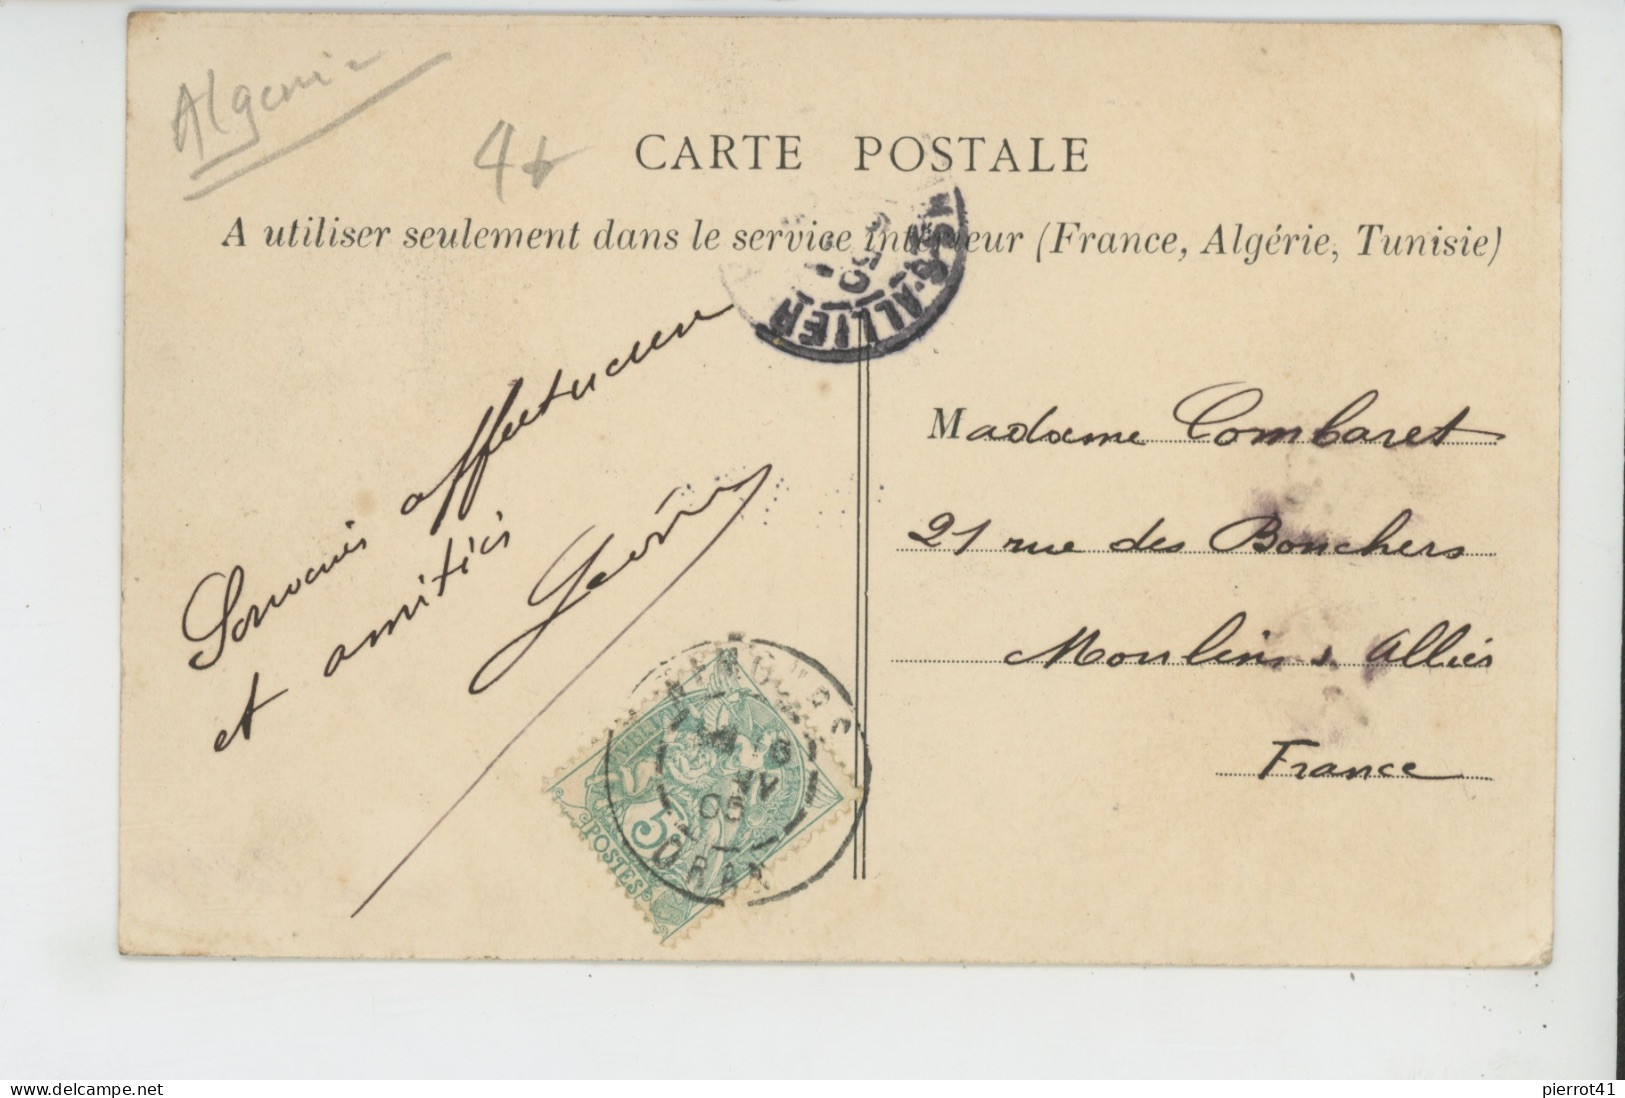 Algérie
4
CARTE POSTALE
A utiliser seulement dans le service intérieur (France, Algérie, Tunisie)
ALLIER
05
Souvenir affectueux
et amitiés
Madame Combaret
21 rue des Bouchers
Moulins s Allier
France
5
POSTES
05
ORAN
www.delcampe.net
pierrot41